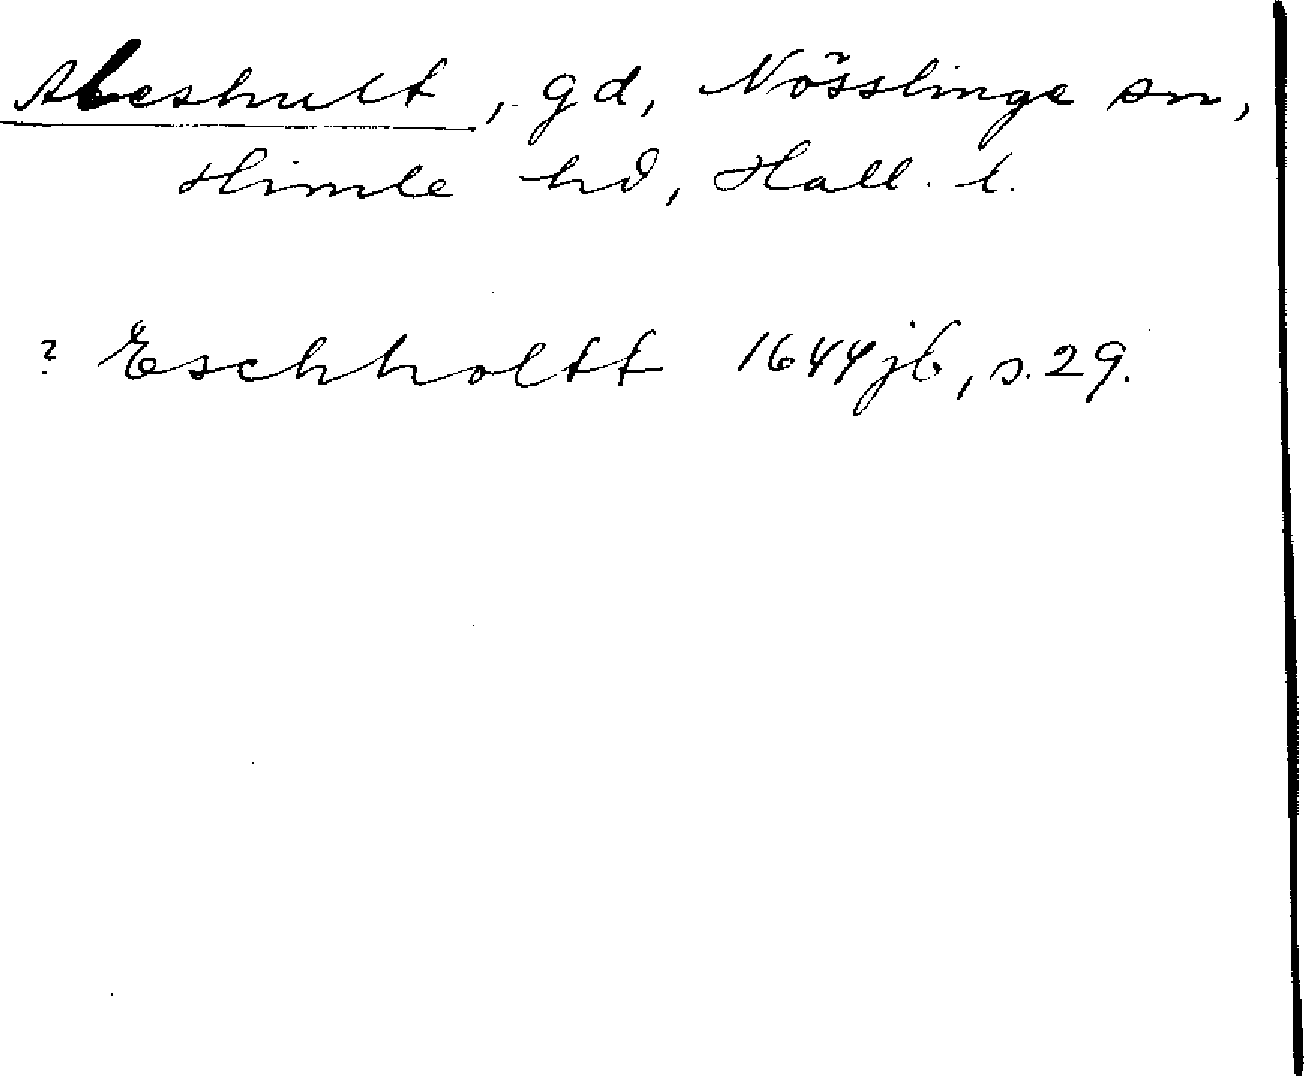 Abeshult, gd, Nösslinge sn,
Himle hd, Hall. l.
? Eschholtt 1644 jb, s. 29.